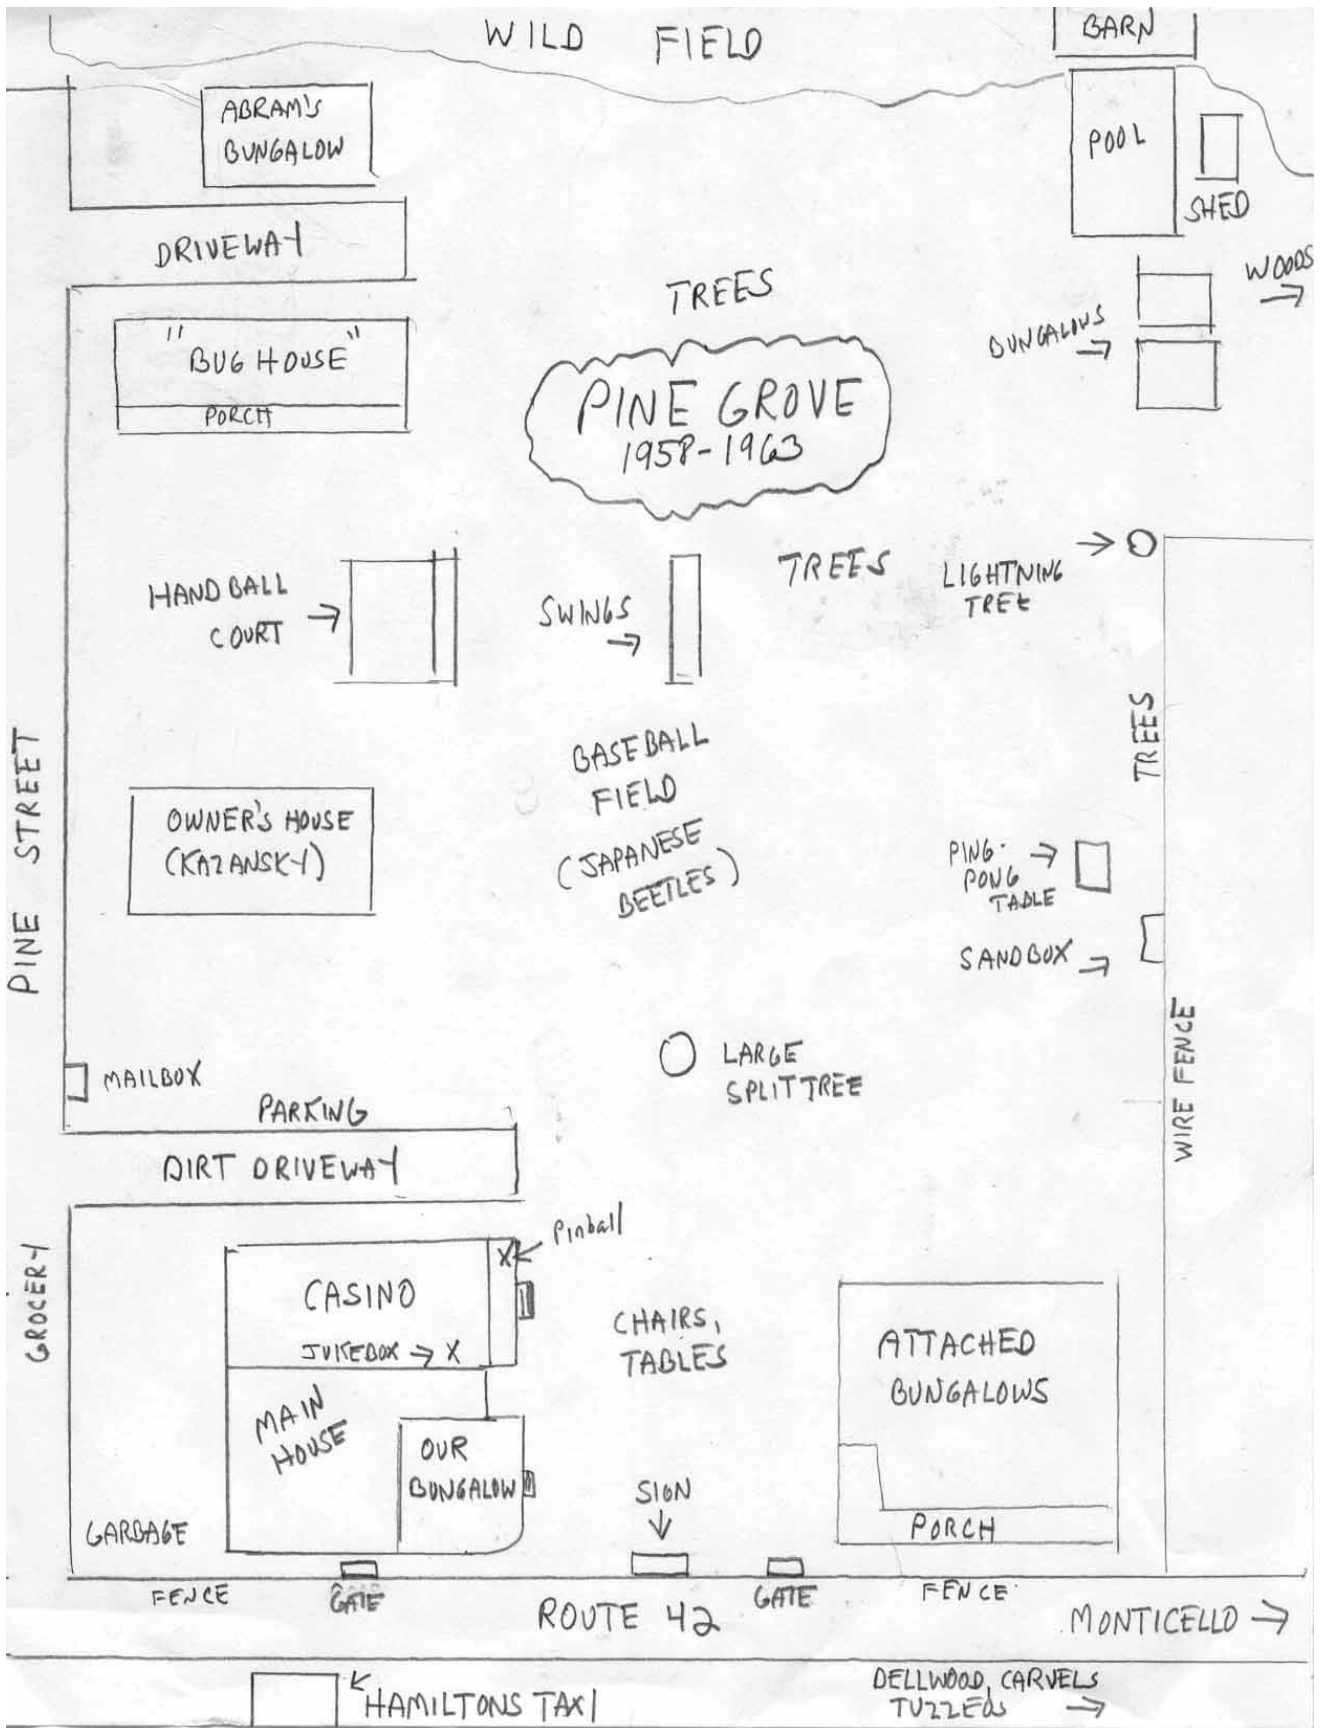 WILD FIELD
BARN
ABRAM'S
BUNGALOW
POOL
SHED
DRIVEWAY
WOODS
TREES
BUNGALOWS
"BUG HOUSE"
PORCH
PINE GROVE
1958-1963
HANDBALL
COURT
SWINGS
TREES
LIGHTNING
TREE
TREES
BASEBALL
FIELD
(JAPANESE
BEETLES)
PINE STREET
OWNER'S HOUSE
(KAZANSKY)
PING-
PONG
TABLE
SANDBOX
WIRE FENCE
LARGE
SPLIT TREE
MAILBOX
PARKING
DIRT DRIVEWAY
GROCERY
Pinball
X
CASINO
JUKEBOX → X
CHAIRS,
TABLES
ATTACHED
BUNGALOWS
MAIN
HOUSE
OUR
BUNGALOW
SIGN
GARBAGE
PORCH
FENCE
GATE
ROUTE 42
GATE
FENCE
MONTICELLO →
HAMILTONS TAXI
DELLWOOD, CARVELS
TUZZEOS →